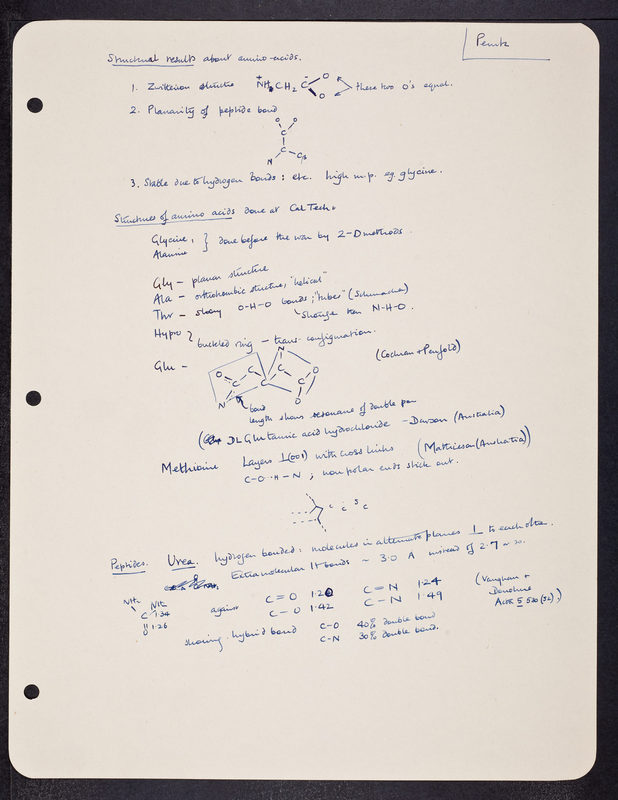 Perutz
Structural results about amino-acids.
1. Zwitterion structure +NH3 CH2 C - O O these two O's equal.
2. Planarity of peptide bond
O O
C
C
N Cβ
3. Stable due to hydrogen bonds: etc. high m.p. eg. glycine.
Structures of amino acids done at Cal Tech.
Glycine, } done before the war by 2-D methods.
Alanine
Gly - planar structure
Ala - orthorhombic structure, "helical"
Thr - strong O-H-O bonds; "tubes" (Schumacher)
stronger than N-H-O.
Hypro } buckled ring - trans configuration.
Glu - (Cochran + Penfold)
N
O C C C O
C C
N O
bond
length shows resonance of double
( DL Glutamic acid hydrochloride - Dawson (Australia)
Methionine Layers ⊥(001) with cross links (Mathieson (Australia))
C-O·H-N; non polar ends stick out.
C C S C
Peptides. Urea. hydrogen bonded: molecules in alternate planes ⊥ to each other.
Extramolecular H bonds ~ 3.0 A instead of 2.7
NH2 NH2
C 1.34
O 1.26
against C=O 1.20 C=N 1.24
C-O 1.42 C-N 1.49
(Vaughan + Donohue Acta 5 530 (52),)
showing hybrid bond C-O 40% double bond
C-N 30% double bond.